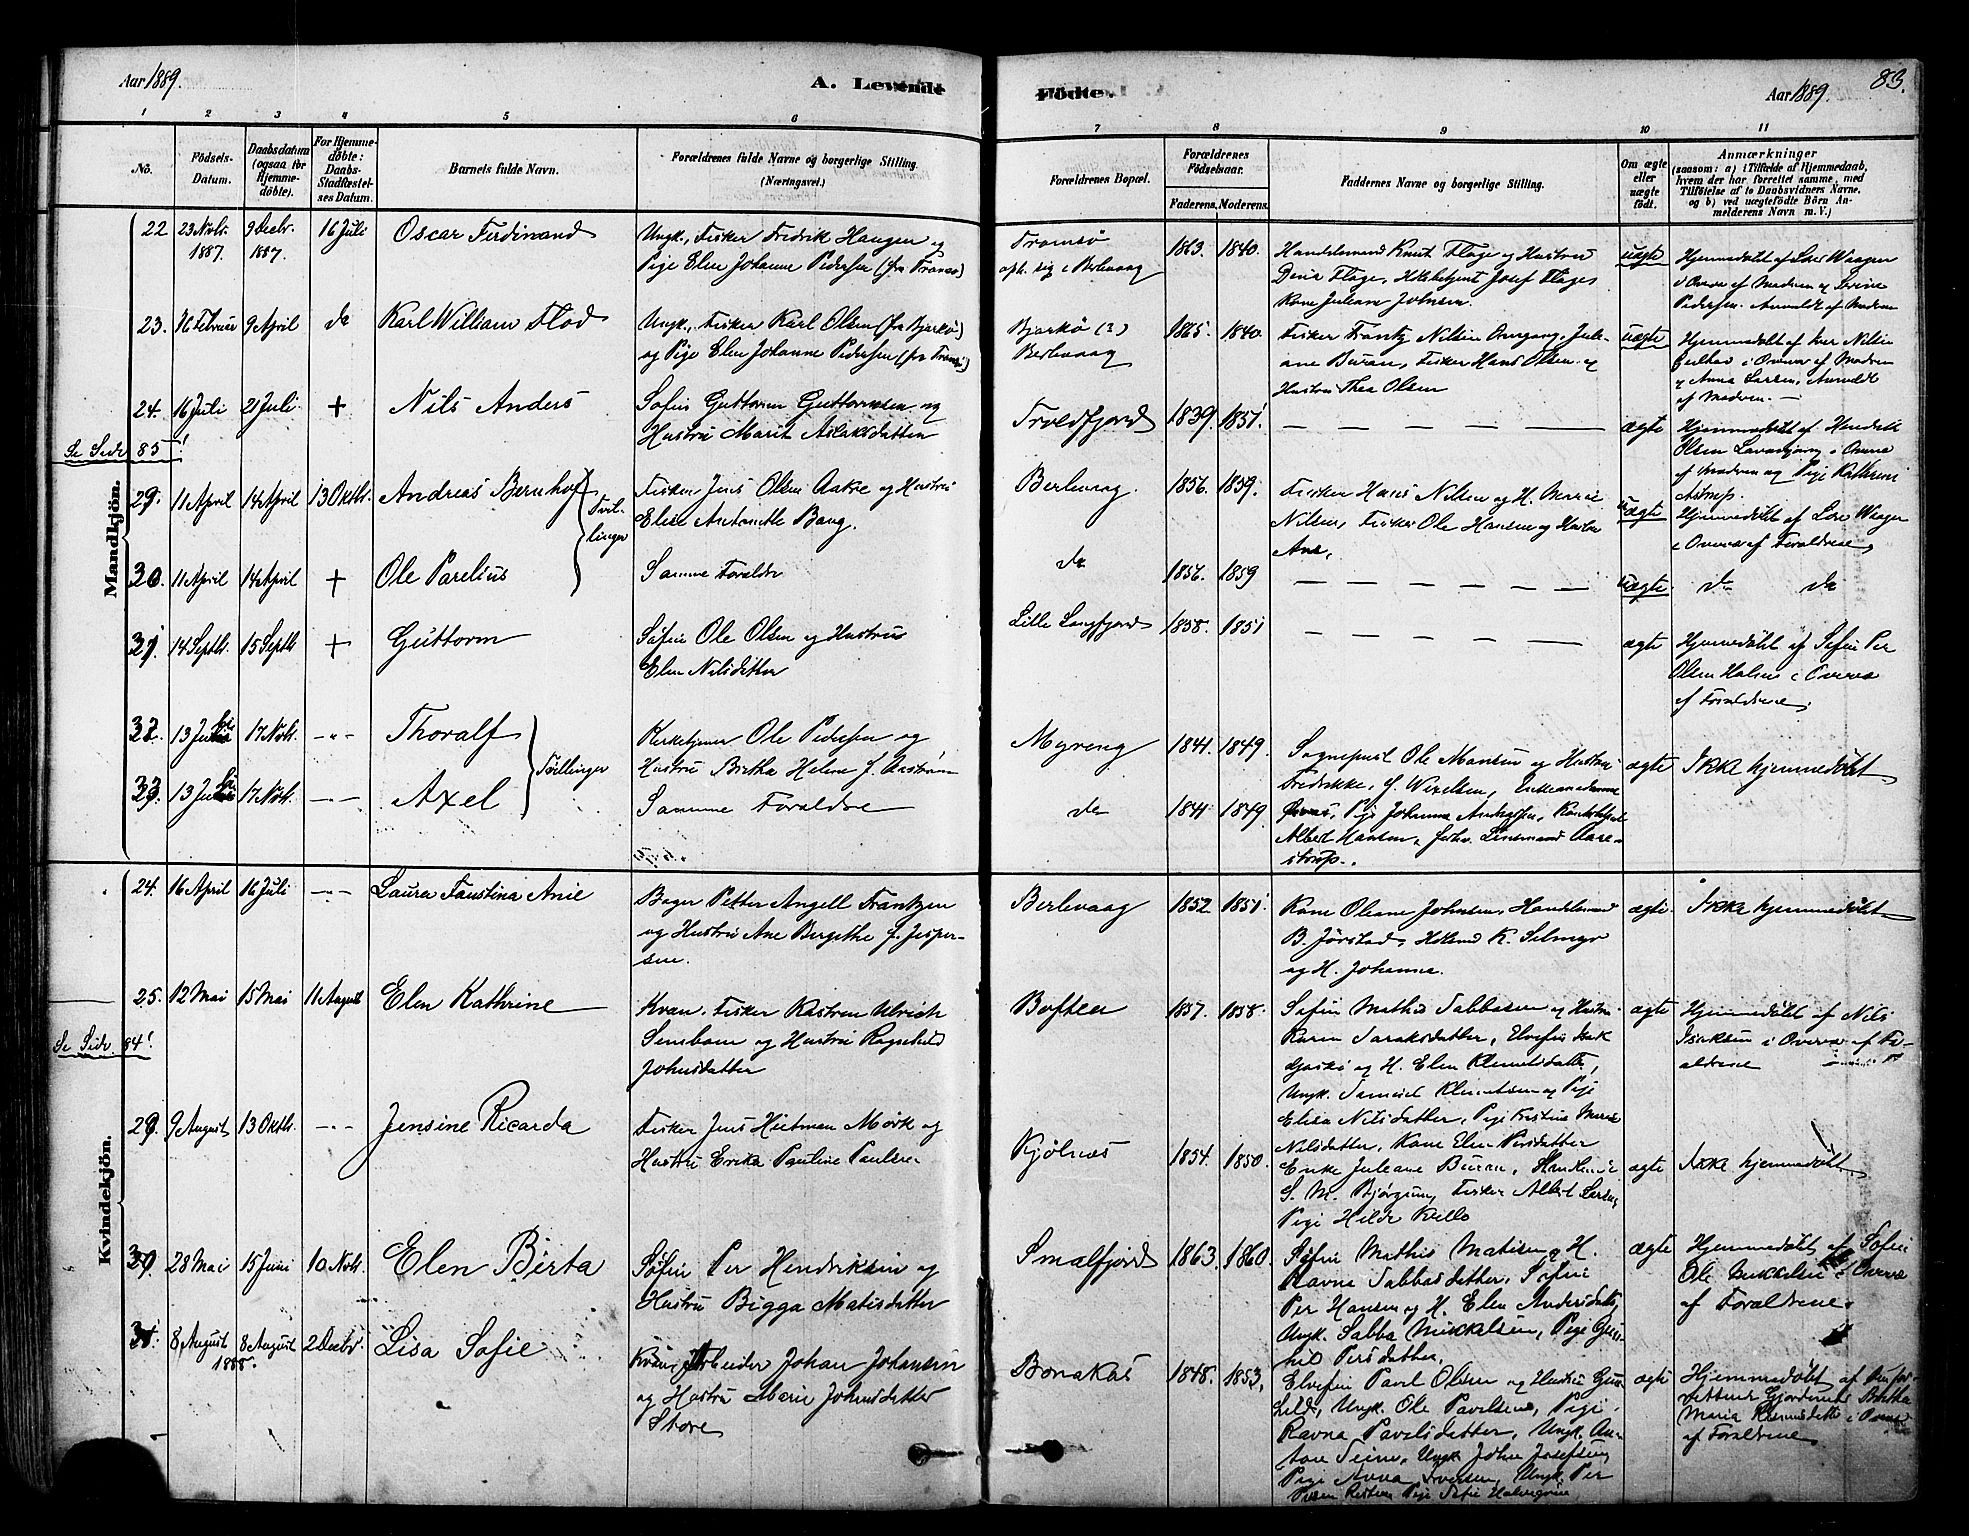 Aar 1889.
A. Levende
Födte.
Aar 1889.
83.
1 2 3 4 5 6 7 8 9 10 11
No.
Födsels-Datum.
Daabsdatum (ogsaa for Hjemmedöbte).
For Hjemmedöbte: Daabs-Stadfæstelses Datum.
Barnets fulde Navn.
Forældrenes fulde Navne og borgerlige Stilling. (Næringsvei.)
Forældrenes Bopæl.
Forældrenes Födselsaar.
Faderens.
Moderens.
Faddernes Navne og borgerlige Stilling.
Om ægte eller uægte födt.
Anmærkninger
(saasom: a) i Tilfælde af Hjemmedaab, hvem der har forrettet samme, med Tilföielse af to Daabsvidners Navne, og b) ved uægtefödte Börn Anmelderens Navn m. V.)
Mandkjön.
22 23 Novbr. 1887. 9 Decbr. 1887. 16 Juli Oscar Ferdinand
Ungk., Fisker Fredrik Hansen og
Pige Elen Johanne Pedersen (fra Tromsö)
Tromsö
oph. sig i Berlevaag
1863. 1840.
Handelsmand Knut Flage og Hustru
Dina Flage, Josef Flages
Kone Juliane Johnsen.
uægte
Hjemmedöbt af Lars Waagen
i Overv. af Modren og
Pedersen. Anmeldt af Modren
23. 16 Februar 9 April do Karl William Flod
Ungk., Fisker Karl Olsen (fra Bjarkö)
og Pige Elen Johanne Pedersen (fra Tromsö)
Bjarkö (?)
Berlevaag
1865. 1840.
Fisker Frantz Nilsen Omgang, Juli-
ane Buran, Fisker Hans Olsen og
Hustru Thea Olsen
uægte
Hjemmedöbt af Iver Nilsen
i Overv. af Modren
og Anna Larsen, Anmeldt
af Modren. —
24. 16 Juli 21 Juli + Nils Anders
Söfin Guttorm Guttormsen og
Hustru Marit Aslaksdatter
Troldfjord 1839. 1851. — — — — — ægte
Hjemmedöbt af Hendrik
Olsen i Overv.
af Modren og Pige Kathrine
Astrup.
Se Side 85!
29. 11 April 14 April 13 Oktbr. Andreas Bernhof
Tvillinger
Fisker Jens Olsen Aakre og Hustru
Elise Antonette Bang.
Berlevaag. 1856. 1859.
Fisker Hans Nilsen og H. Marie
Nilsen, Fisker Ole Hansen og Hustru
Ane,
uægte
Hjemmedöbt af Lars Waagen
i Overv. af Forældrene,
30. 11 April 14 April + Ole Parelius
Samme Forældre
do 1856. 1859 — — — — — — uægte do do
31 14 Septbr. 15 Septbr + Guttorm
Söfin Ole Olsen og Hustru
Elen Nilsdatter
Lille Langfjord 1858. 1851 — — — — — ægte
Hjemmedöbt af Söfin Per
Olsen Halsen i Overv
af Forældrene.
32. 13 Juli 17 Novbr. -"- Thoralf
Tvillinger
Kirketjener Ole Pedersen og
Hustru Birtha Helene f.
Myreng 1841. 1849.
Sogneprest Ole Hansen og Hustru
Fredrikke, f. Wexelsen, Enkemadamme
ægte Ikke hjemmedöbt
33. 13 Juli 17 Novbr. -"- Axel
Samme Forældre
do 1841. 1849.
Pige Johanna Kontorist
Albert Hansen, Lensmand Aare-
strup.
Kvindekjön.
24. 16 April 16 Juli -"- Laura Faustina Anie
Bager Petter Angell Frantzen
og Hustru Ane Bergithe f. Jesper-
sen.
Berlevaag 1852 1851.
Kone Oleane Johnsen, Handelsmand
B. Jörstad, K. Selmer
og H. Johanna.
ægte. Ikke hjemmedöbt
25. 12 Mai 15 Mai 11 August Elen Kathrine
Kvæn. Fisker Kastren Ulrich
og Hustru Ragnhild
Johnsdatter
Boften 1857. 1858.
Söfin Mathis Sabbasen og Hustru
Karen Saraksdatter, Elvefin Isak
og H. Elen Klemetsdatter,
Ungk. Samuel Klemetsen og Pige
Elisa Nilsdatter, Pige Kristine Marie
Nilsdatter, Kone Elen Persdatter
ægte
Hjemmedöbt af Nils
Isaksen i Overv. af For-
ældrene
Se Side 84!
29. 9 August 13 Oktbr. -"- Jensine Ricarda
Fisker Jens Heitman Mörk og
Hustru Erika Pauline Paulsen
Kjölnes 1854. 1850.
Enke Juleane Buran,
S. M. Björgum, Fisker Albert Larsen,
Pige Hilda Kvello
ægte Ikke hjemmedöbt
30. 28 Mai 15 Juni 10 Novbr. Elen Birta
Söfin Per Hendriksen og
Hustru Bigga Matisdatter
Smalfjord 1863. 1860.
Söfin Mathis Matisen og H.
Ravna Sabbasdatter, Söfin
Per Hansen og H. Elen Andersdatter,
Ungk. Sabba Mikkelsen, Pige Gun-
hild Persdatter.
ægte
Hjemmedöbt af Söfin
Ole Mikkelsen i Overv
af Forældrene.
31. 8 August 1888. 8 August 2 Decbr. Lisa Sofie
Kvæn, Arbeider Johan Johansen
og Hustru Marie Johnsdatter
Store
Bonakas 1848. 1853.
Elvefin Pavel Olsen og Hustru Gun-
hild, Ungk. Ole Pavelsen, Pige
Ravna Pavelsdatter, Ungk. An-
ton Ungk. John Josefsen,
Pige Anna Iversen, Ungk. Per
Pige Sofie
ægte
Hjemmedöbt af
Gjordemor Birtha
Maria i Overv
af Forældrene